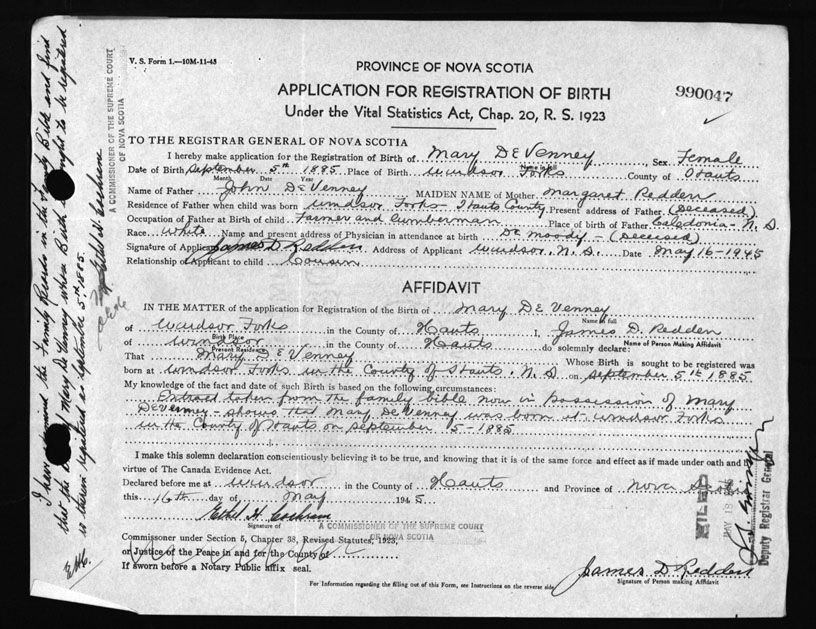 V. S. Form 1.—10M-11-43
PROVINCE OF NOVA SCOTIA
APPLICATION FOR REGISTRATION OF BIRTH
990047
Under the Vital Statistics Act, Chap. 20, R. S. 1923
TO THE REGISTRAR GENERAL OF NOVA SCOTIA
I hereby make application for the Registration of Birth of Mary DeVenney, Sex Female
Date of Birth September 5th 1885 Place of Birth Windsor Forks County of Hants
Month Date Year
Name of Father John DeVenney MAIDEN NAME of Mother Margaret Redden
Residence of Father when child was born Windsor Forks - Hants County. Present address of Father (Deceased)
Occupation of Father at Birth of child Farmer and Lumberman Place of birth of Father Caledonia - N. S.
Race White Name and present address of Physician in attendance at birth Dr Moody - (Deceased)
Signature of Applicant James D Redden Address of Applicant Windsor, N. S. Date May 16 - 1945
Relationship of Applicant to child Cousin
AFFIDAVIT
IN THE MATTER of the application for Registration of the Birth of Mary DeVenney
Name in full
of Windsor Forks in the County of Hants I, James D. Redden
Birth Place Name of Person Making Affidavit
of Windsor in the County of Hants do solemnly declare:
Present Residence
That Mary DeVenney Whose Birth is sought to be registered was
born at Windsor Forks in the County of Hants, N. S. on September 5th 1885
My knowledge of the fact and date of such Birth is based on the following circumstances:
Entraed taken from the family bible now in Possession of Mary
DeVenney - shows that Mary DeVenney was born at Windsor Forks
in the County of Hants on September 5 - 1885
I make this solemn declaration conscientiously believing it to be true, and knowing that it is of the same force and effect as if made under oath and by
virtue of The Canada Evidence Act.
Declared before me at Windsor in the County of Hants and Province of Nova Scotia
this 16th day of May 1945
Ethel H Cochran
Signature of
A COMMISSIONER OF THE SUPREME COURT
OF NOVA SCOTIA
Commissioner under Section 5, Chapter 38, Revised Statutes, 1923,
or Justice of the Peace in and for the County of
If sworn before a Notary Public affix seal.
James D Redden
Signature of Person making Affidavit
For Information regarding the filling out of this Form, see Instructions on the reverse side
I have examined the Family Records in the Family Bible and find
that the Mary DeVenney whose Birth sought to be registered
is therein registered as September 5th 1885.
Ethel H Cochran
A COMMISSIONER OF THE SUPREME COURT
OF NOVA SCOTIA
EHC.
FILED
MAY 18
Deputy Registrar General